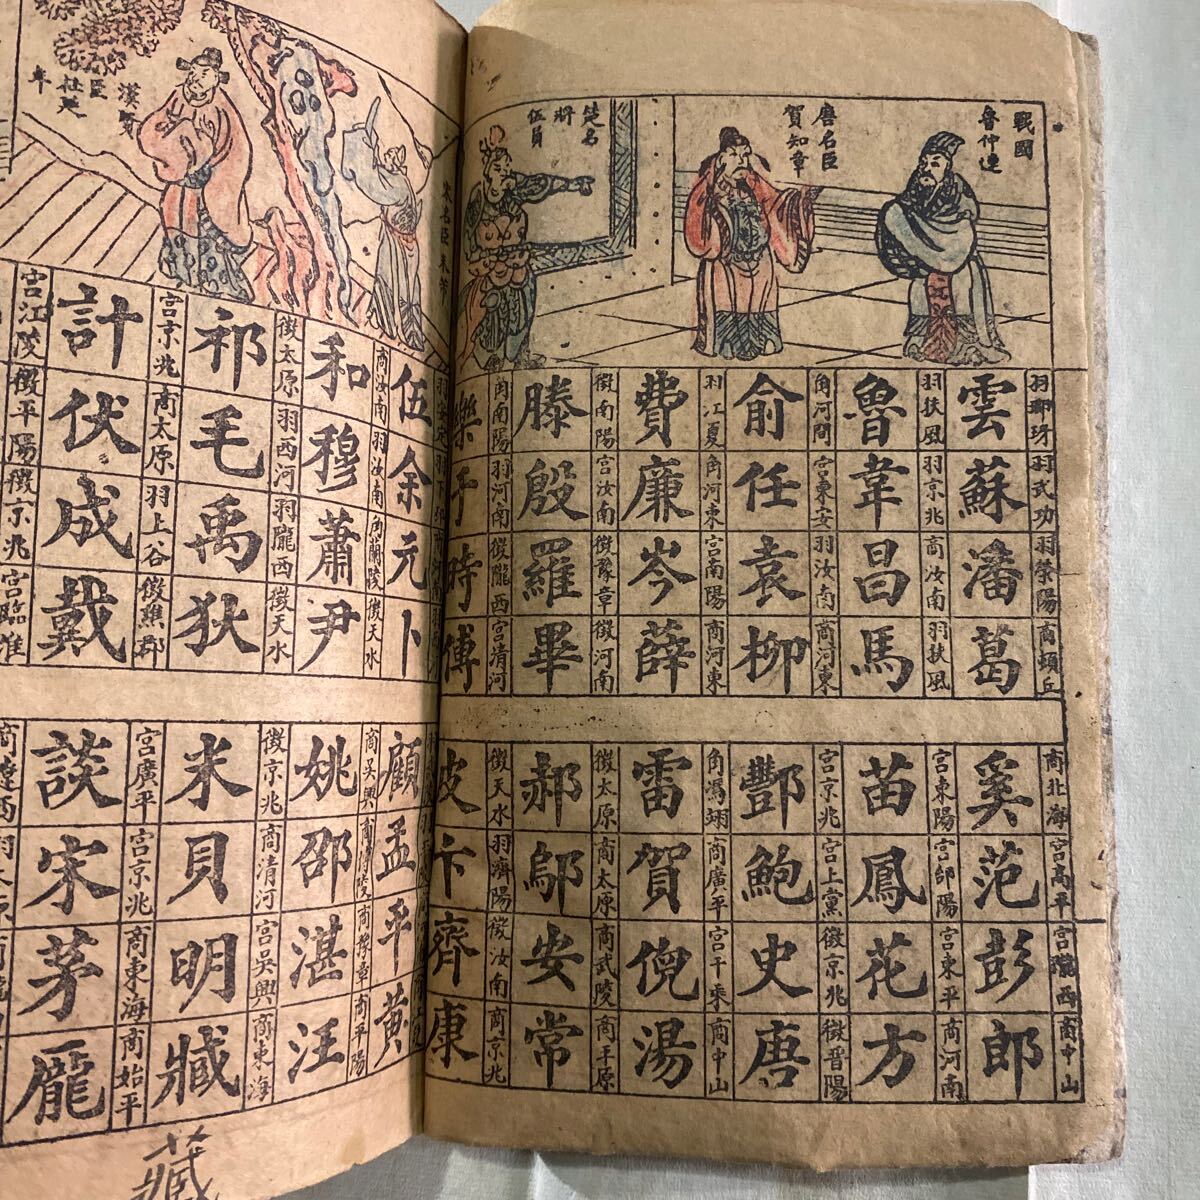 戰國
魯仲連
唐名臣
賀知章
楚名
將
伍員
漢賢
臣
年
羽武功 羽滎陽 商頓丘
雲蘇潘葛
羽扶風 羽京兆 商汝南 羽扶風
魯韋昌馬
角河間 宮東安 羽汝南 商河東
俞任袁柳
羽江夏 角河東 宮南陽 商河東
費廉岑薛
徵南陽 宮汝南 徵豫章 徵河南
滕殷羅畢
商南陽 羽河南 徵隴西 宮清河
樂于時傅
商北海 宮高平 宮隴西 商中山
奚范彭郎
宮東陽 宮邰陽 宮東平 商河南
苗鳳花方
宮京兆 宮上黨 徵京兆 徵晉陽
酆鮑史唐
角馮翊 商廣平 宮千乘 商中山
雷賀倪湯
徵太原 商太原 商武陵 商平原
郝鄔安常
徵天水 羽濟陽 徵汝南 商京兆
皮卞齊康
伍余元卜
商汝南 羽汝南 角蘭陵 徵天水
和穆蕭尹
徵太原 羽西河 羽隴西 徵天水
祁毛禹狄
宮京兆 商太原 羽上谷 徵譙郡
計伏成戴
宮江陵 徵平陽 徵京兆 宮臨淮
顧孟平黃
商吳興 商豫章 商平陽
姚邵湛汪
徵京兆 商清河 宮吳興 商東海
米貝明臧
宮廣平 宮京兆 商東海 商始平
談宋茅龐
藏